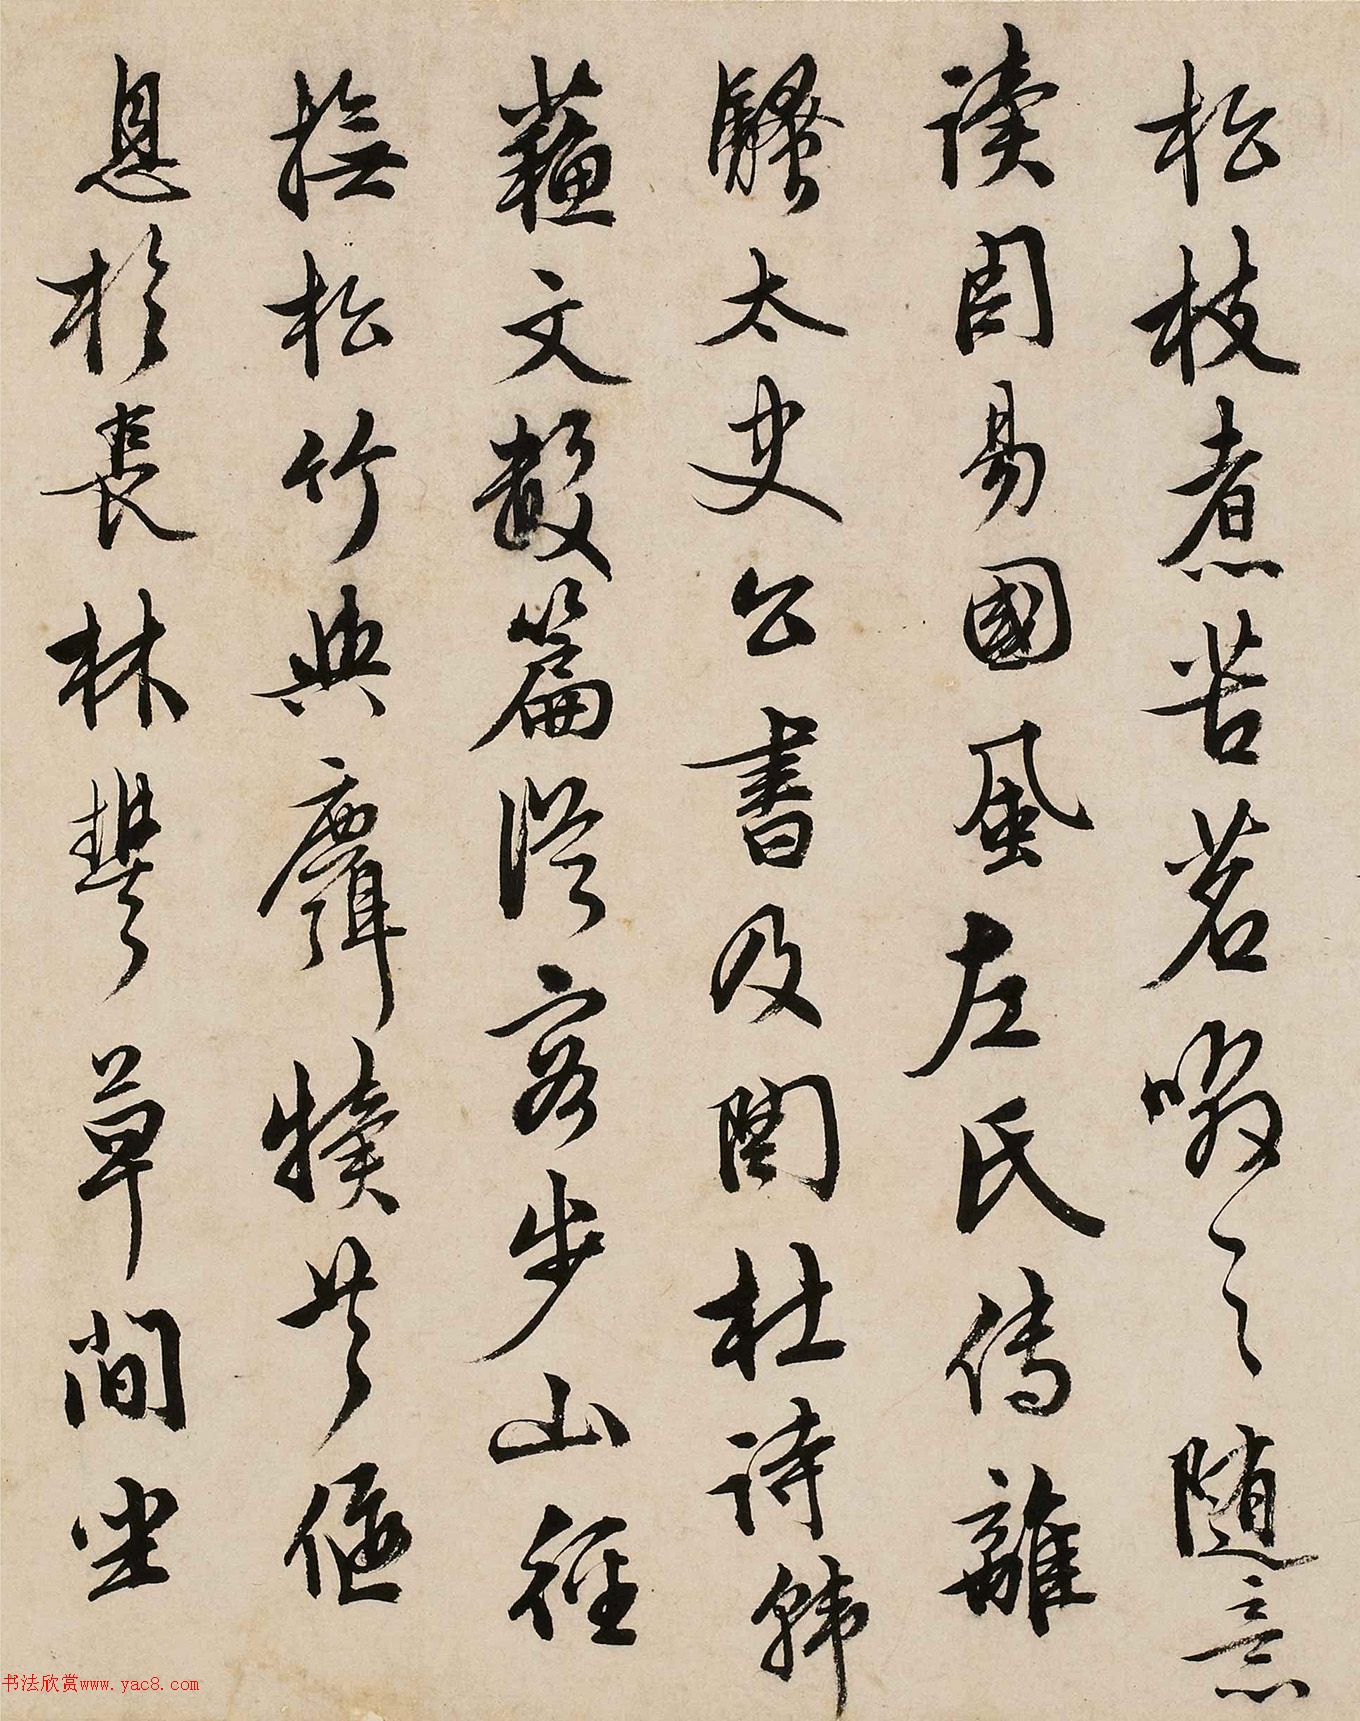 松枝煮苦茗啜之随意
读周易國風左氏傳離
騷太史公書及陶杜詩韓
蘇文數篇從容步山徑
撫松竹與麛犢共偃
息於長林豐草間坐
书法欣赏www.yac8.com